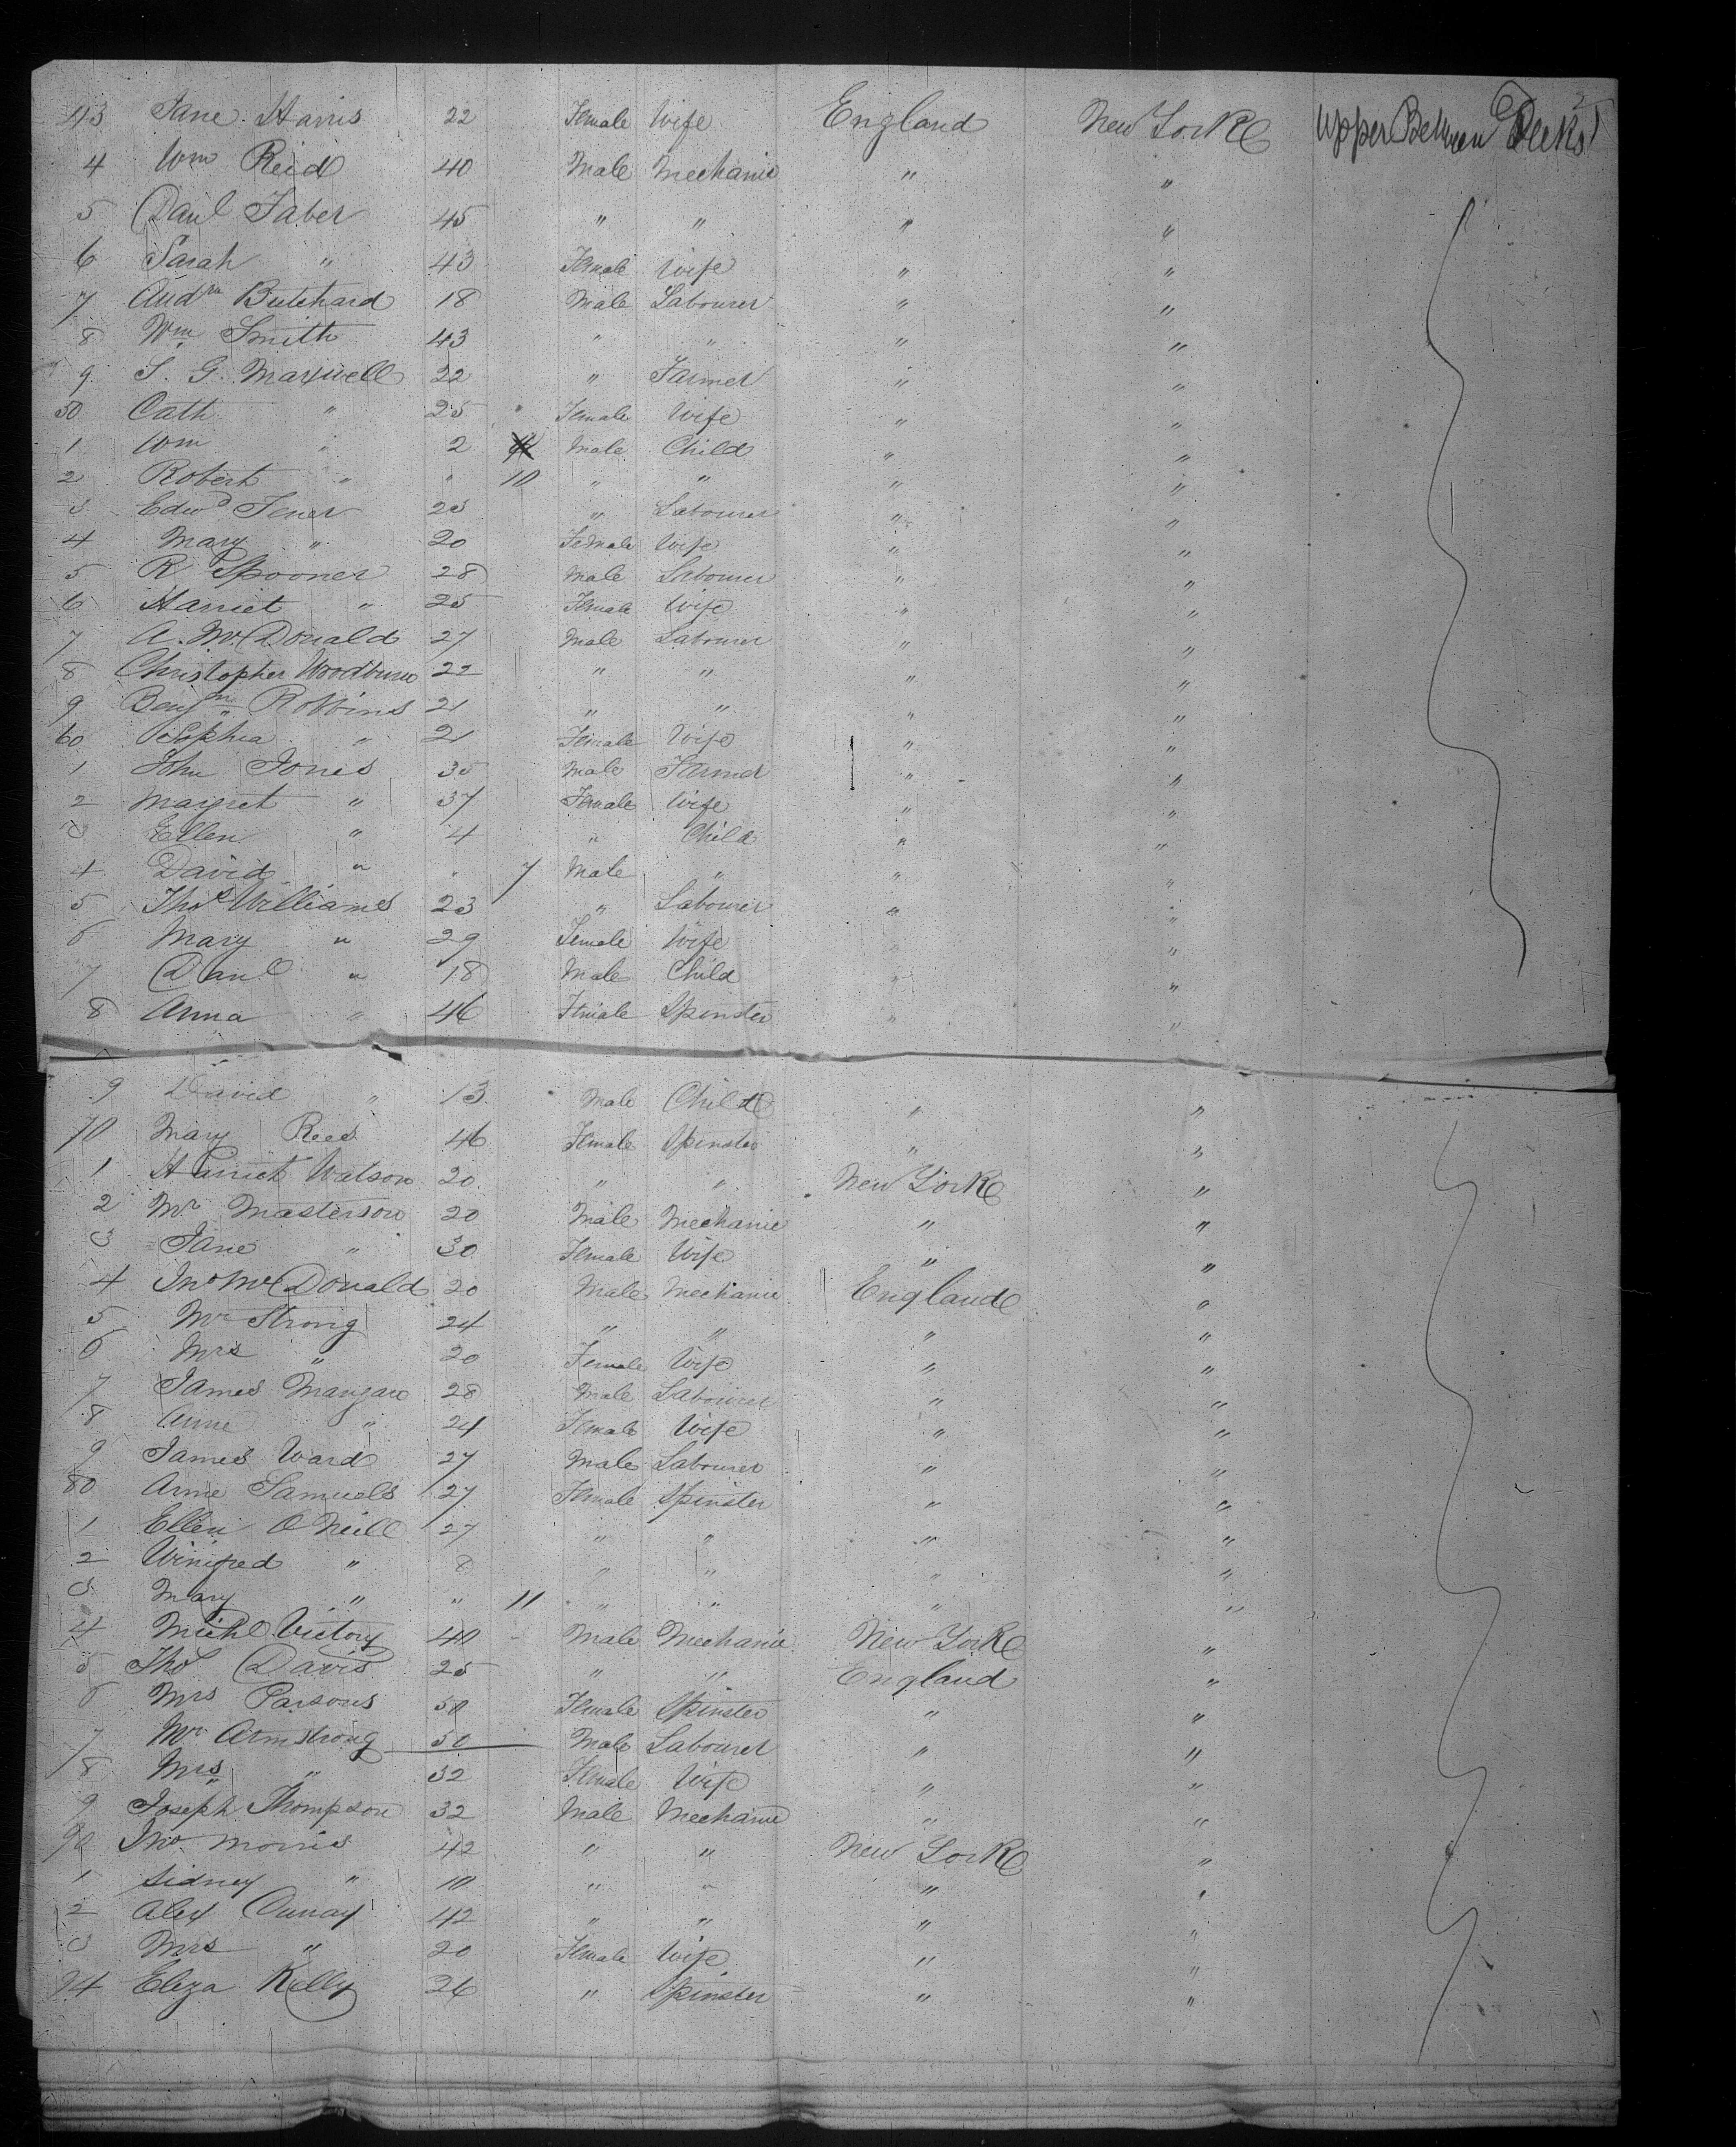 43 Jane Harris 22 Female Wife England New York Upper Between Decks
4 Wm Reid 40 Male Mechanic " "
5 Danl Faber 45 " " " "
6 Sarah " 43 Female Wife " "
7 Andw Butchard 18 Male Labourer " "
8 Wm Smith 43 " " " "
9 S. G. Maxwell 22 " Farmer " "
50 Cath " 25 Female Wife " "
1 Wm " 2 Male Child " "
2 Robert " " 10 " " " "
3 Edwd Jener 23 " Labourer " "
4 Mary " 20 Female Wife " "
5 R Spooner 28 Male Labourer " "
6 Harriet " 25 Female Wife " "
7 A. McDonald 27 Male Labourer " "
8 Christopher Woodburn 22 " " " "
9 Benjm Robbins 21 " " " "
60 Sophia " 21 Female Wife " "
1 John Jones 35 Male Farmer " "
2 Margret " 37 Female Wife " "
3 Ellen " 4 " Child " "
4 David " " 7 Male " " "
5 Thos Williams 23 " Labourer " "
6 Mary " 29 Female Wife " "
7 Danl " 18 Male Child " "
8 Anna " 46 Female Spinster " "
9 David " 13 Male Child " "
70 Mary Rees 46 Female Spinster " "
1 Harriet Watson 20 " " New York "
2 Mr Masterson 20 Male Mechanic " "
3 Jane " 30 Female Wife " "
4 Jno McDonald 20 Male Mechanic England "
5 Mr Strong 24 " " " "
6 Mrs " 20 Female Wife " "
7 James Mangan 28 Male Labourer " "
8 Anne " 24 Female Wife " "
9 James Ward 27 Male Labourer " "
80 Anne Samuels 27 Female Spinster " "
1 Ellen O Neill 27 " " " "
2 Winifred " 8 " " " "
3 Mary " " 11 " " " "
4 Michl Victory 40 Male Mechanic New York "
5 Thos Davis 25 " " England "
6 Mrs Parsons 50 Female Spinster " "
7 Mr Armstrong 50 Male Labourer " "
8 Mrs " 32 Female Wife " "
9 Joseph Thompson 32 Male Mechanic " "
90 Jno Morris 42 " " New York "
1 Sidney " 10 " " " "
2 Alex 42 " " " "
3 Mrs " 20 Female Wife " "
94 Eliza Kelly 26 " Spinster " "